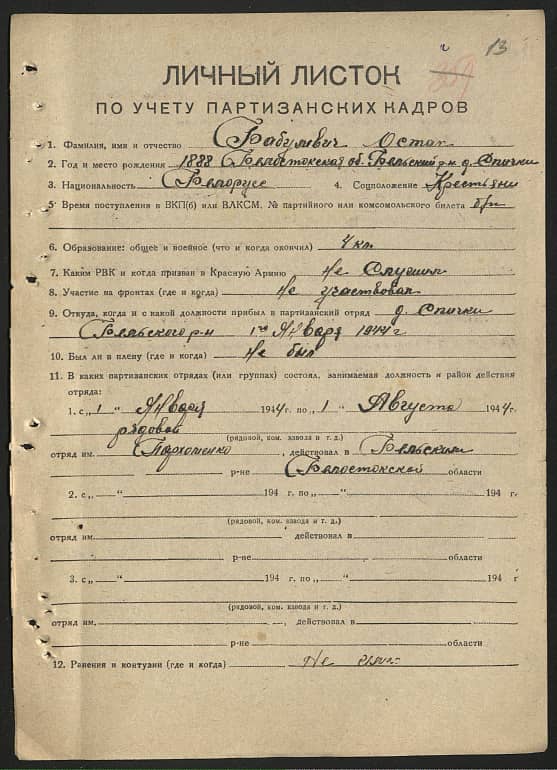 13
ЛИЧНЫЙ ЛИСТОК
ПО УЧЕТУ ПАРТИЗАНСКИХ КАДРОВ
1. Фамилия, имя и отчество Бабулевич Остап
2. Год и место рождения 1888 Белостокская об. Бельский р-н д. Спички
3. Национальность Белорусс 4. Соцположение Крестьяни
5. Время поступления в ВКП(б) или ВЛКСМ, № партийного или комсомольского билета б/п
6. Образование: общее и военное (что и когда окончил) 4 кл.
7. Каким РВК и когда призван в Красную Армию Не Служил
8. Участие на фронтах (где и когда) Не участвовал
9. Откуда, когда и с какой должности прибыл в партизанский отряд д. Спички
Бельского р-н 1го Января 1944 г
10. Был ли в плену (где и когда) Не был
11. В каких партизанских отрядах (или группах) состоял, занимаемая должность и район действия
отряда:
1. с „1" Января 1944 г. по „1" Августа 1944 г.
рядовой
(рядовой, ком. взвода и т. д.)
отряд им. Пархоменко, действовал в Бельским
р-не Белостокской области
2. с „ " 194 г. по „ " 194 г.
(рядовой, ком. взвода и т. д.)
отряд им. действовал в
р-не области
3. с „ " 194 г. по „ " 194 г
(рядовой, ком. взвода и т. д.)
отряд им. , действовал в
р-не области
12. Ранения и контузии (где и когда) Не